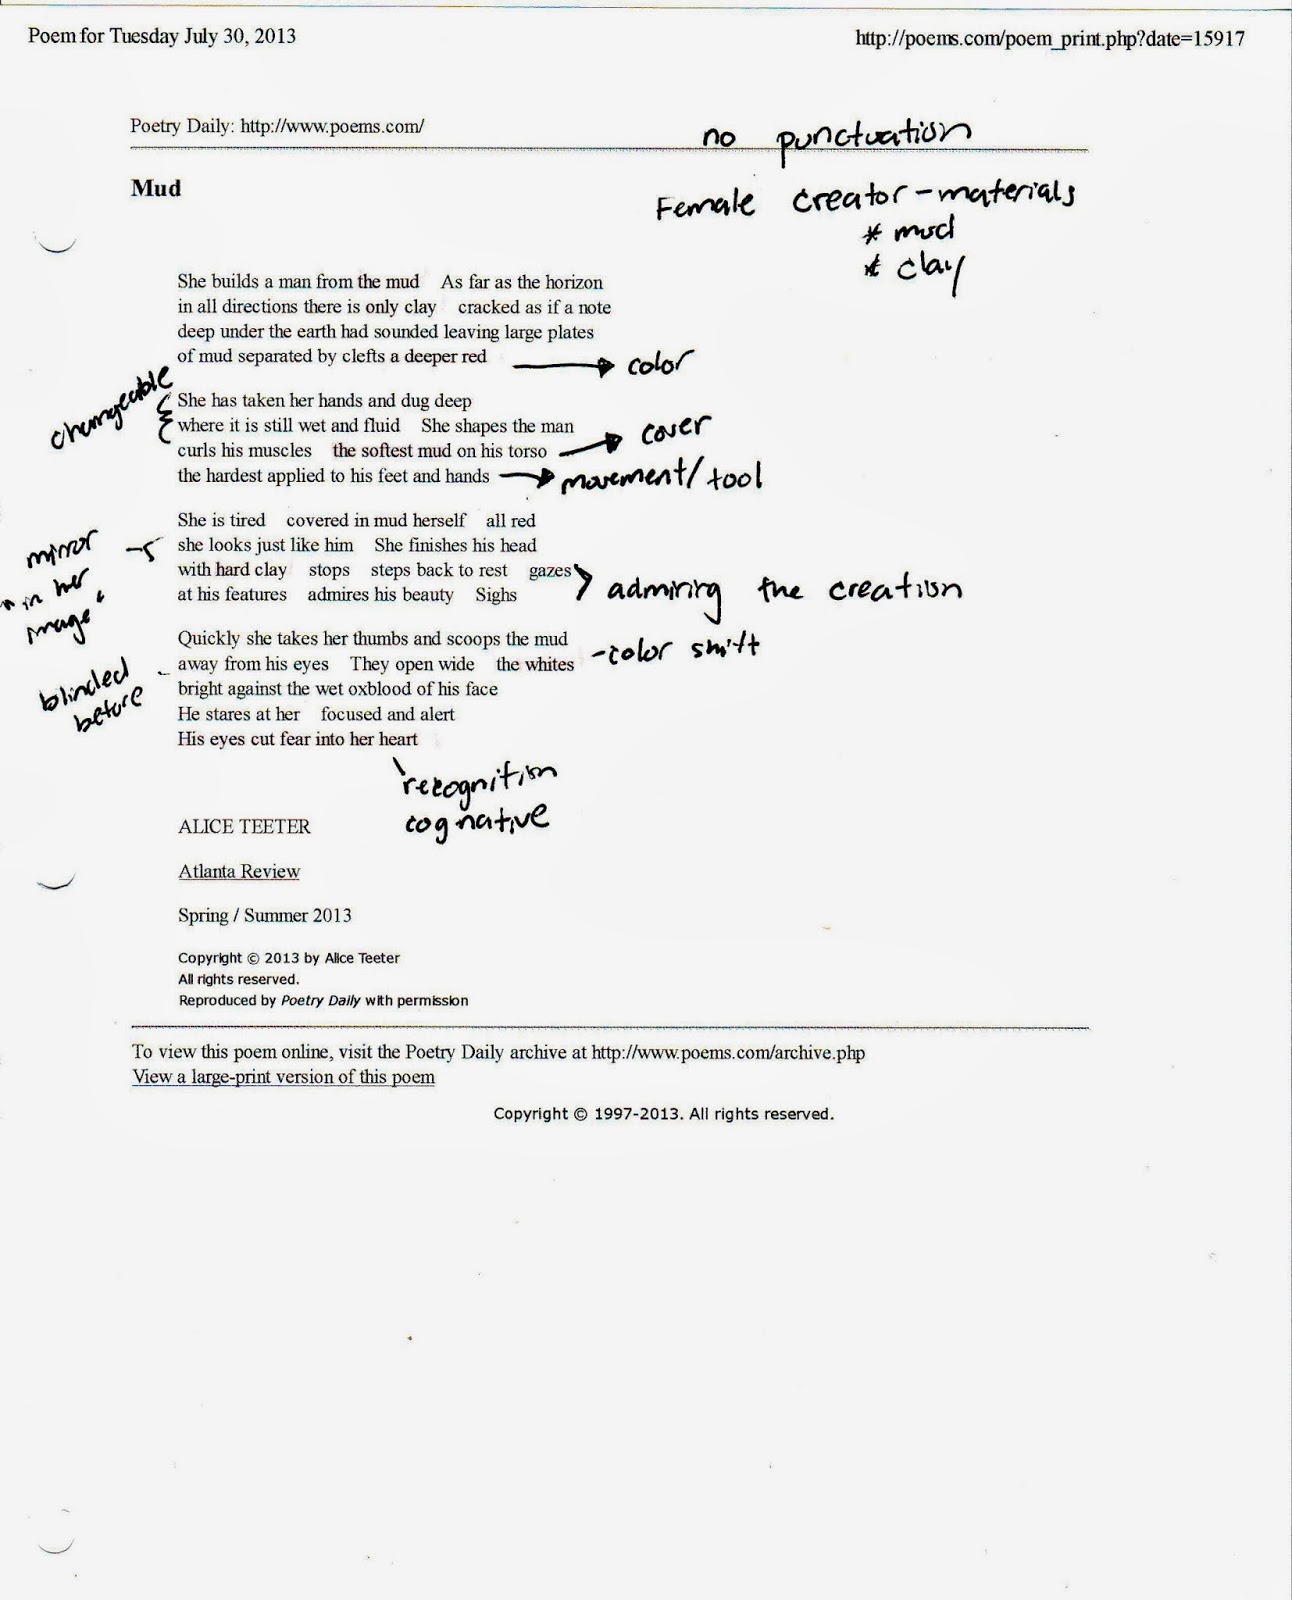 Poem for Tuesday July 30, 2013
http://poems.com/poem_print.php?date=15917
Poetry Daily: http://www.poems.com/
no punctuation
Mud
Female creator - materials
* mud
* clay
She builds a man from the mud    As far as the horizon
in all directions there is only clay    cracked as if a note
deep under the earth had sounded leaving large plates
of mud separated by clefts a deeper red
color
changeable
She has taken her hands and dug deep
where it is still wet and fluid    She shapes the man
cover
curls his muscles    the softest mud on his torso
the hardest applied to his feet and hands
movement/tool
She is tired    covered in mud herself    all red
mirror
she looks just like him    She finishes his head
with hard clay    stops    steps back to rest    gazes
at his features    admires his beauty    Sighs
admiring the creation
"in her
image"
Quickly she takes her thumbs and scoops the mud
-color shift
away from his eyes    They open wide    the whites
blinded
before
bright against the wet oxblood of his face
He stares at her    focused and alert
His eyes cut fear into her heart
recognition
cognative
ALICE TEETER
Atlanta Review
Spring / Summer 2013
Copyright © 2013 by Alice Teeter
All rights reserved.
Reproduced by Poetry Daily with permission
To view this poem online, visit the Poetry Daily archive at http://www.poems.com/archive.php
View a large-print version of this poem
Copyright © 1997-2013. All rights reserved.